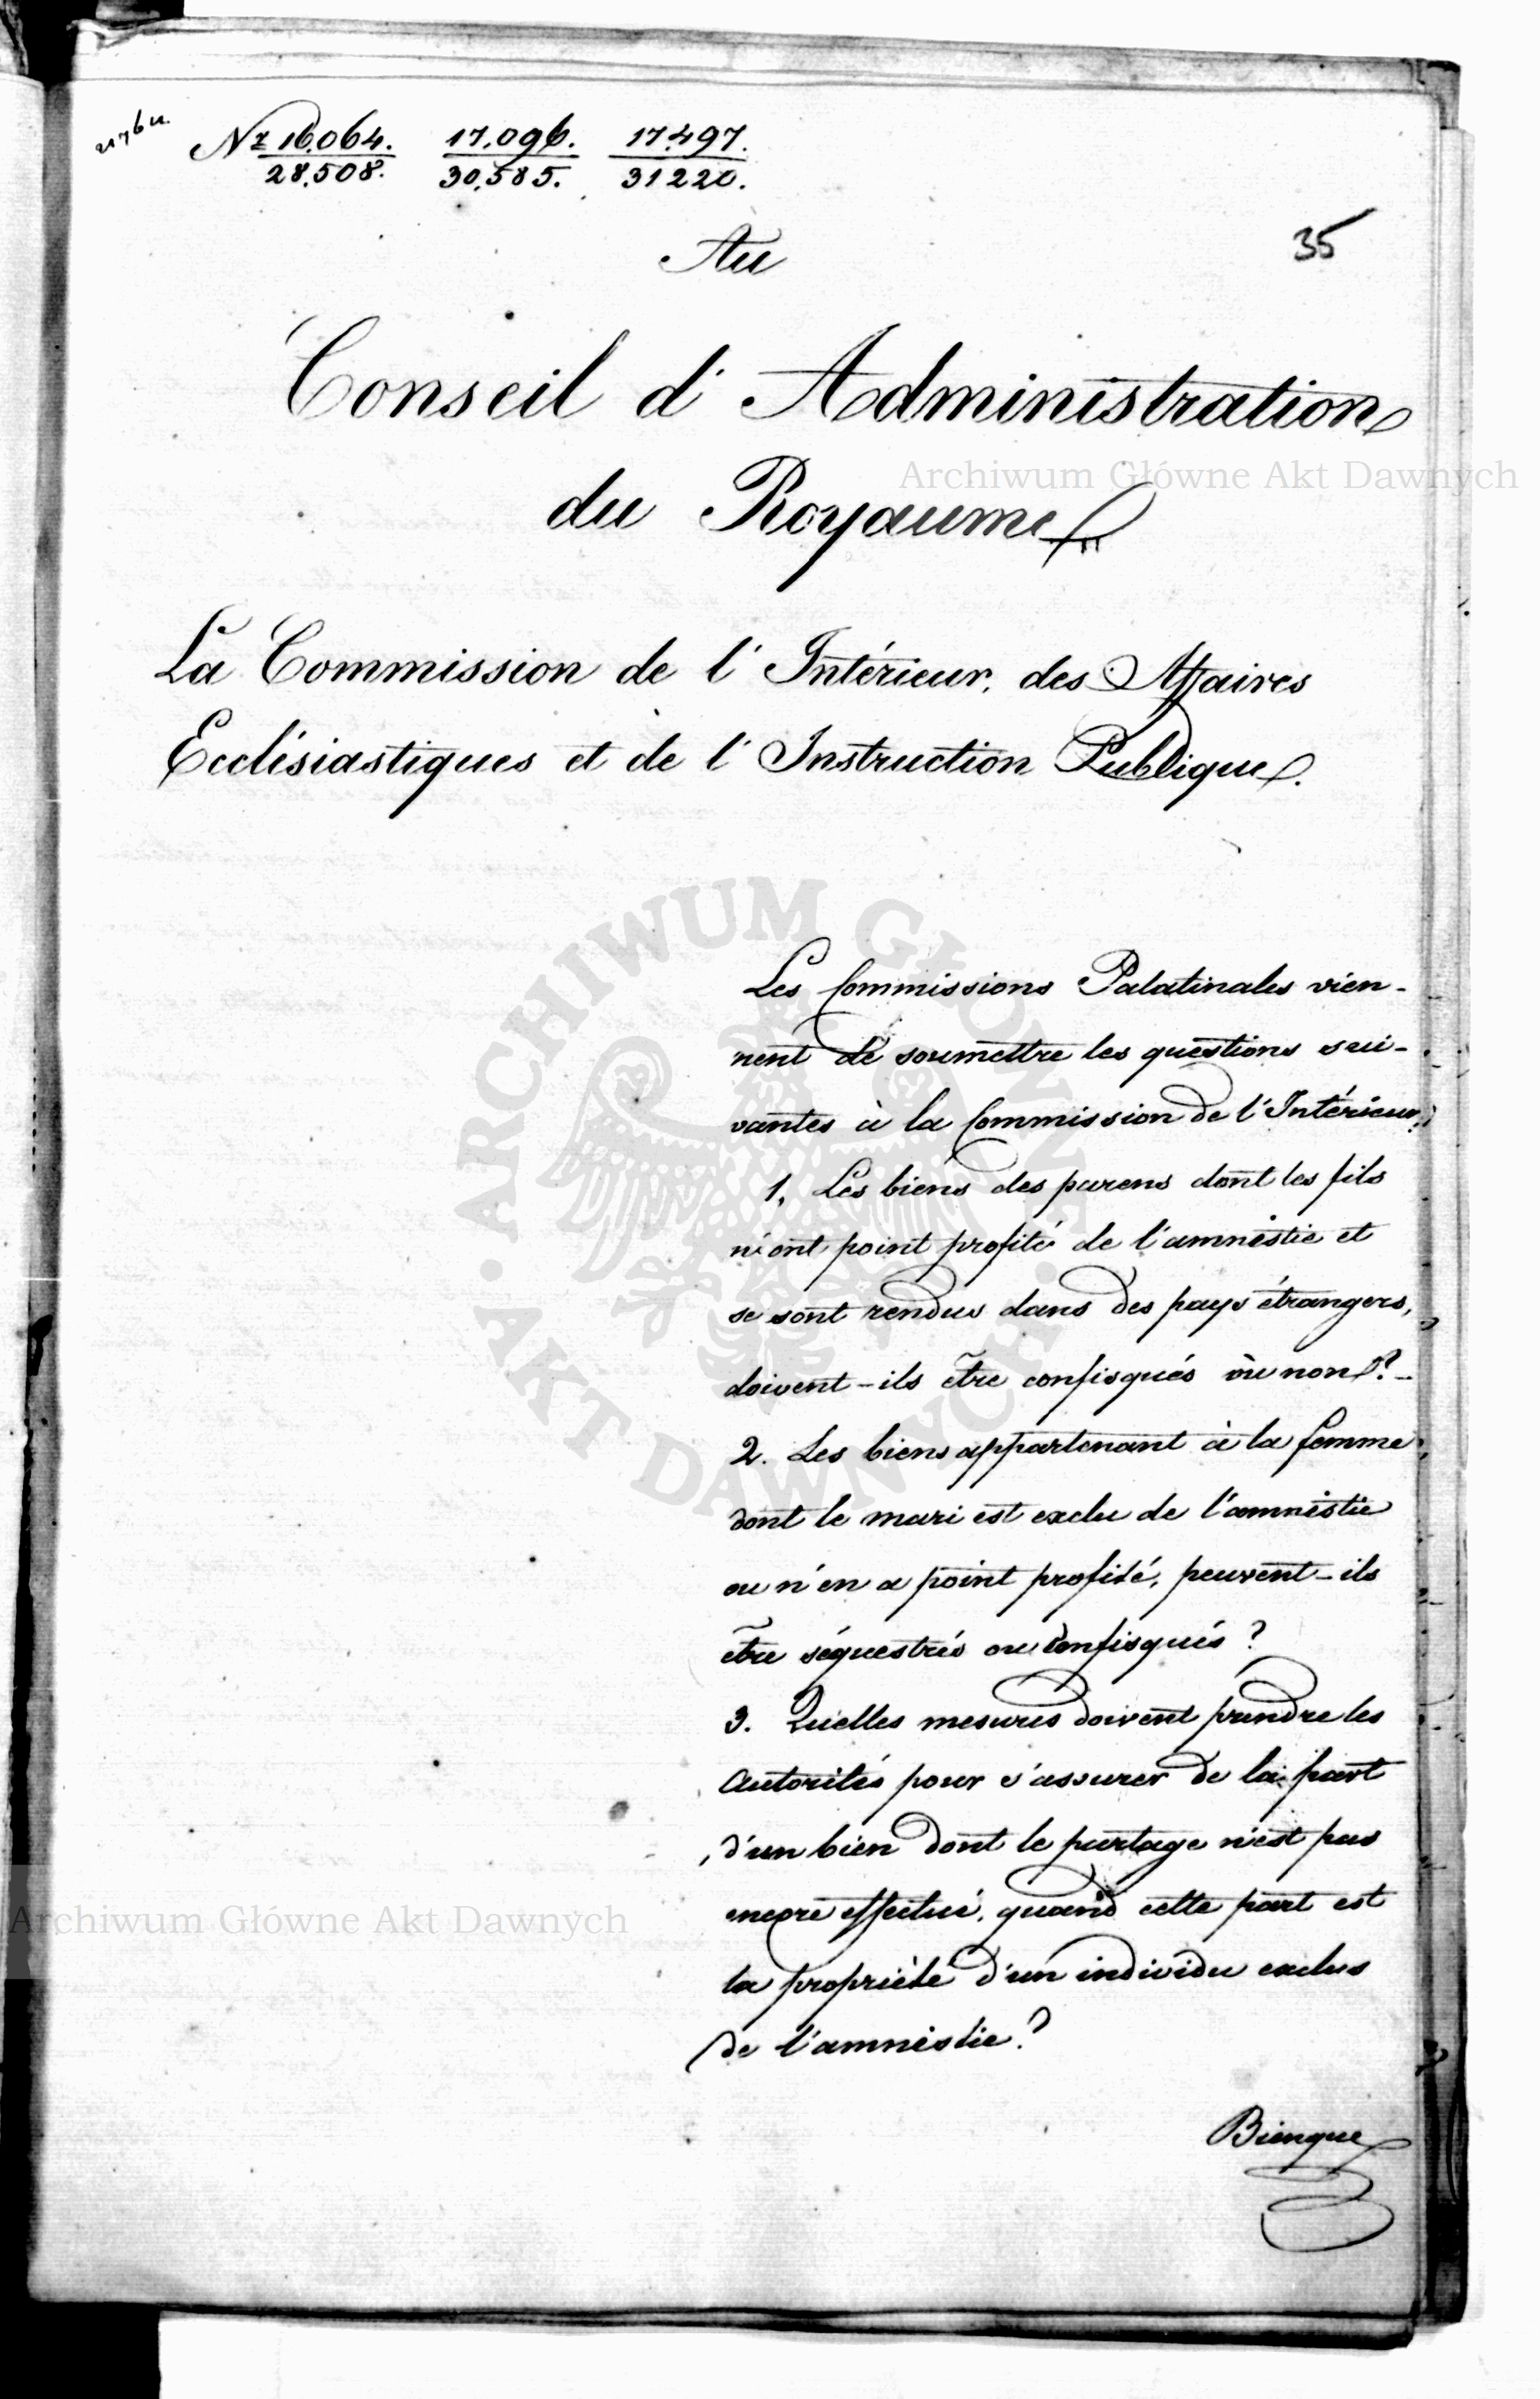 Nr 16.064. 17.096. 17.497.
28.508. 30.585. 31220.
35
Au
Conseil d'Administration
du Royaume
Archiwum Główne Akt Dawnych
La Commission de l'Intérieur, des Affaires
Ecclésiastiques et de l'Instruction Publique.
ARCHIWUM GŁÓWNE • AKT DAWNYCH •
Les Commissions Palatinales vien-
nent de soumettre les questions sui-
vantes à la Commission de l'Intérieur:
1. Les biens des parens dont les fils
n'ont point profité de l'amnistie et
se sont rendus dans des pays étrangers,
doivent-ils être confisqués ou non?
2. Les biens appartenant à la femme
dont le mari est exclu de l'amnistie
ou n'en a point profité, peuvent-ils
être séquestrés ou confisqués?
3. Quelles mesures doivent prendre les
Autorités pour s'assurer de la part
d'un bien dont le partage n'est pas
encore effectué, quand cette part est
la propriété d'un individu exclus
de l'amnistie?
Archiwum Główne Akt Dawnych